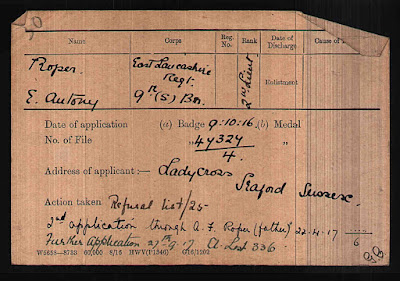 50
Name Corps Reg. No. Rank Date of Discharge Cause of
Roper. East Lancashire Regt. 2nd Lieut Enlistment
E. Antony 9th (S) Bn.
Date of application (a) Badge 9.10.16. (b) Medal
No. of File 47324 "
4.
Address of applicant :— Ladycross
Seaford Sussex.
Action taken Refusal list/25-
2nd application through A. F. Roper (father) 22.4.17
6
Further Application 27th 9.17 A. List 336.
W5658—8733 60,000 8/15 HWV(P1340) G16/1202